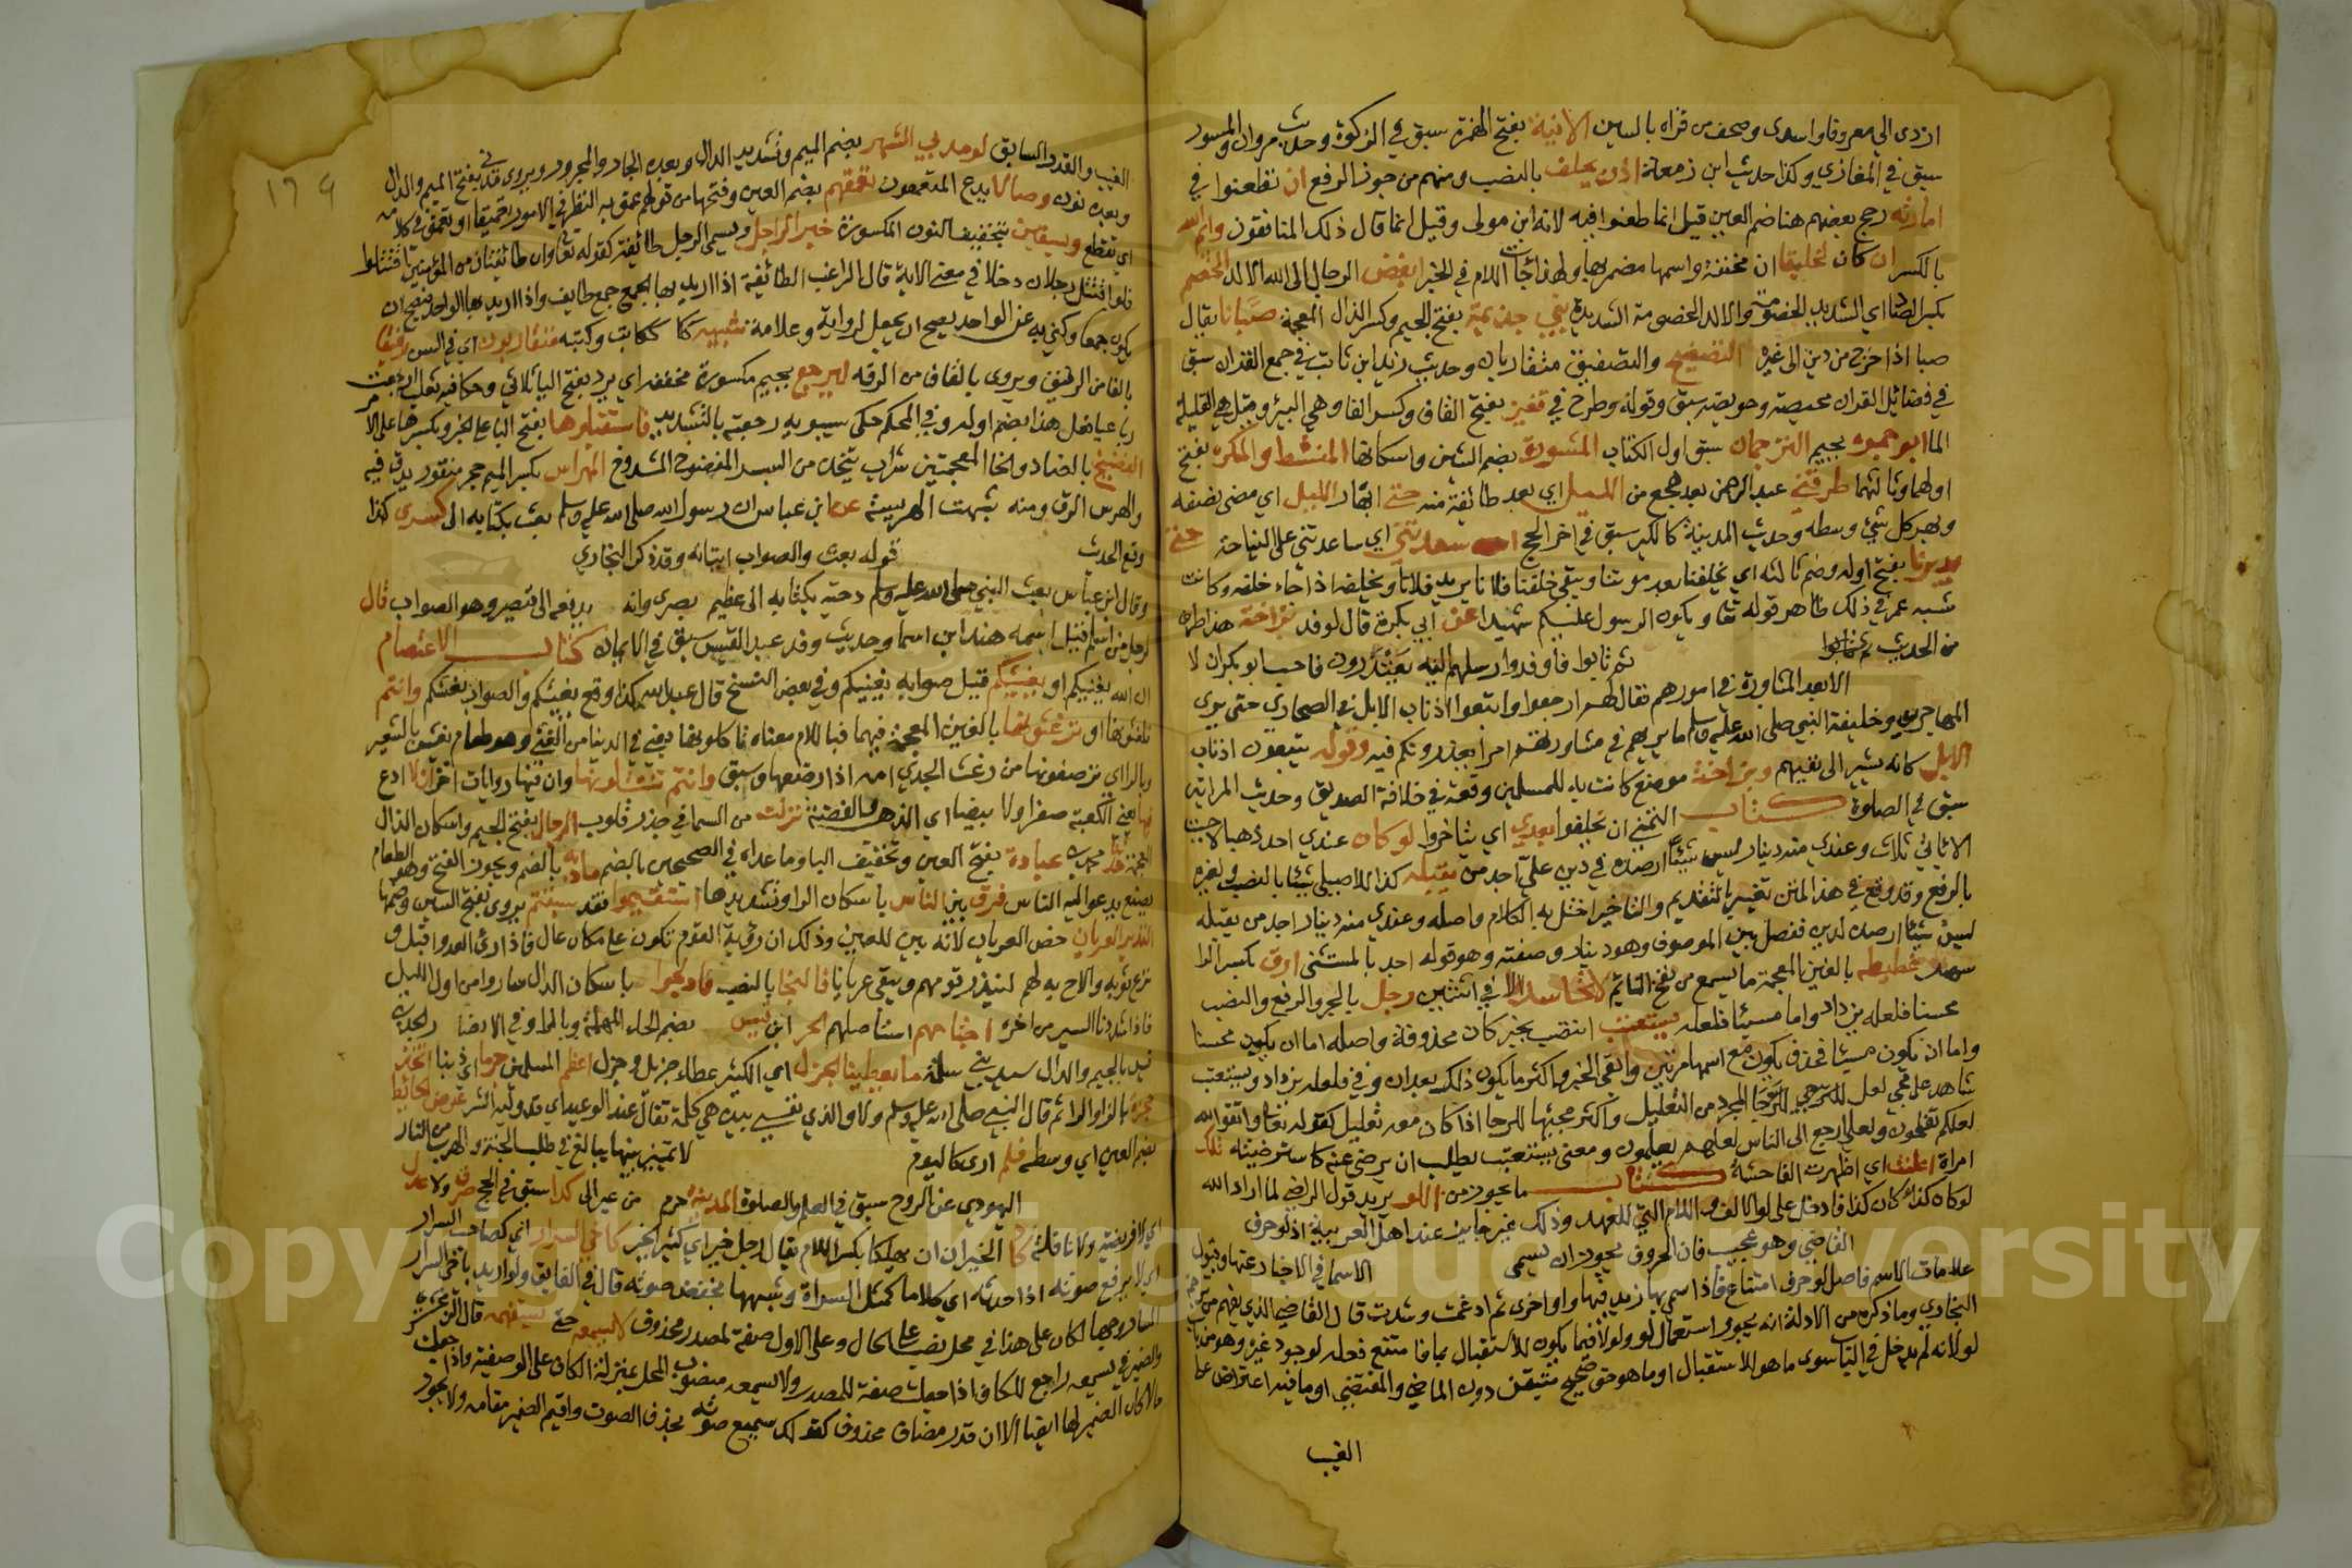 ازدى الي معروفا واسدى وصحف من قراه بالسين الاثنية بفتح الهمزة سبق في الزكوة وحديث مروان والمسور
سبق في المغازي وكذا حديث ابن زمعة اذن يحلف بالنصب ومنهم من جوز الرفع ان تطعنوا في
امارته رجح بعضهم هنا ضم العين قيل انما طعنوا فيه لانه ابن مولى وقيل انما قال ذلك المنافقون وايم الله
بالكسر ان كان لخليقا ان مخففة واسمها مضمر بها ولهذا جات اللام في الخبر ابغض الرجال الى الله الالد الخصم
بكسر الصاد اي الشديد الخصومة والالد الخصومة الشديدة بني جذيمة بفتح الجيم وكسر الذال المعجمة صبانا يقال
صبا اذا خرج من دين الى غيره التصفيح والتصفيق متقاربان وحديث زيد ابن ثابت في جمع القران سبق
في فضائل القران محيصة وحويصة سبق وقوله وطرح في فقير بفتح الفاف وكسر القا وهي البئر وقيل هي القليلة
الما ابو جمرة بجيم الترجمان سبق اول الكتاب المشورة بضم الشين واسكانها المنشط والمكره بفتح
اولهما وثالثهما طرقني عبد الرحمن بعد هجع من الليل اي بعد طائفة منه حتى ابهار الليل اي مضى نصفه
وبهر كل شئ وسطه وحديث المدينة كالكير سبق في اخر الحج اسعدتني اي ساعدتني على النياحة حتى
يدبرنا بفتح اوله وضم ثالثه اي يخلفنا بعد موتنا ويبقى خلفنا فلانا يريد فلانا ويخلفه اذا جاء خلفه وكانت
شبه عمر في ذلك ظاهر قوله تعا ويكون الرسول عليكم شهيدا عن ابي بكرة قال لوفد بزاخة هذا طرف
من الحديث ثم تابوا ثم تابوا فاوفدوا رسلهم اليه يعتذرون فاحب ابو بكر ان لا
الا بعد المشاورة في امورهم فقال لهم ارجعوا واتبعوا اذناب الابل في الصحاري حتى يرى
المهاجرون وخليفة النبي صلى الله عليه وسلم ما يريهم في مشاورتهم امرا يعذرونكم فيه وقوله يتبعون اذناب
الابل كانه يشير الى نفيهم وبزاخة موضع كانت به للمسلمين وقعة في خلافة الصديق وحديث المراتين
سبق في الصلوة كتاب التمني ان يخلفوا بعدي اي يتاخروا لو كان عندي احد ذهبا لاحببت
الا ياتي ثلاث وعندي منه دينار ليس شيئا ارصده في دين علي اجد من يقبله كذا للاصيلي شيئا بالنصب ولغيره
بالرفع وقد وقع في هذا المتن تغيير بالتقديم والتاخير اختل به الكلام واصله وعندي منه دينار اجد من يقبله
ليس شيئا ارصده لدين ففصل بين الموصوف وهو دينار وصفته وهو قوله احد بالمستثنى ارق بكسر الرا
سهر غطيطه بالغين المعجمة ما يسمع من نفخ النائم لا تحاسد الا في اثنتين رجل بالجر والرفع والنصب
محسنا فلعله يزداد واما مسيئا فلعله يستعتب انتصب بخبر كان محذوفة واصله اما ان يكون محسنا
واما ان يكون مسيئا فحذف يكون مع اسمها مرتين وابقى الخبر واكثر ما يكون ذلك بعد ان وفي فلعله يزداد ويستعتب
شاهد على مجي لعل للترجي المجرد من التعليل واكثر مجيئها للرجا اذا كان معه تعليل كقوله تعا واتقوا الله
لعلكم تفلحون ولعلي ارجع الى الناس لعلهم يعلمون ومعنى يستعتب يطلب ان يرضى عنه كاسترضيته تلك
امراة اعلنت اي اظهرت الفاحشة كتاب ما يجوز من اللو يريد قول الراضي لما اراد الله
لو كان كذا كان كذا فادخل على لو الالف واللام التي للعهد وذلك غير جايز عند اهل العربية اذ لو حرف
القاضي وهو عجيب فان الحروف يجوز ان يسمى الاسما في الاخبار عنها وقبول
علامات الاسم فاصل لو حرف امتناع فاذا سمي بها زيد فيها واو اخرى ثم ادغمت وشددت قال القاضي الذي يفهم من ترجمة
البخاري وما ذكره من الادلة انه يجوز استعمال لو ولولا فيما يكون للاستقبال مما امتنع فعله لوجود غيره وهو من باب
لو لانه لم يدخل في الباب سوى ما هو للاستقبال او ما هو حق صحيح متيقن دون الماضي والمنقضي او ما فيه اعتراض على
الغيب
١٦٩
الغيب والقدر السابق لو مد بي الشهر بضم الميم وتشديد الدال وبعده الجار والمجرور ويروى مدني بفتح الميم والدال
وبعده نون وصالا يدع المتعمقون تعمقهم بضم العين وفتحها من قولهم عمق به النظر في الامور تعميقا او تعمق في كلامه
اي تقطع وبيقين بتخفيف النون المكسورة خبر الواحد ويسمى الرجل طائفة كقوله تعا وان طائفتان من المؤمنين اقتتلوا
فلو اقتتل رجلان دخلا في معنى الاية قال الراغب الطائفة اذا اريد بها الجمع جمع طايف واذا اريد بها الواحد فيصح ان
يكون جمعا وكني به عن الواحد يصح ان يجعل لرواية وعلامة شببة كا ككاتب وكتبه متقاربون اي في السن رفيقا
بالفا من الرفيق ويروى بالقاف من الرقة ليرجع بجيم مكسورة مخففه اي يرد بفتح اليا ثلاثي وحكا فيه ثعلب ارجعت
رباعيا فعلى هذا بضم اوله وفي المحكم حكى سيبويه رجعته بالتشديد فاستقبلوها بفتح البا على الخبر وكسرها على الامر
الفضيخ بالضاد والخا المعجمتين شراب يتخذ من البسر المفضوخ المشدوخ المهراس بكسر الميم حجر منقور يدق فيه
والهرس الدق ومنه شبهت الهريسة عن ابن عباس ان رسول الله صلى الله عليه وسلم بعث بكتابه الى كسرى كذا
وقع الحديث قوله بعث والصواب اثباته وقد ذكر البخاري
وقال ابن عباس بعث النبي صلى الله عليه وسلم دحية بكتابه الى عظيم بصرى وانه يدفعه الى قيصر وهو الصواب قال
لرجل من اسلم قيل اسمه هند ابن اسما وحديث وفد عبد القيس سبق في الايمان كتاب الاعتصام
ان الله يغنيكم او يغنيكم قيل صوابه يغنيكم وفي بعض النسخ قال عبد الله كذا وقع يغنيكم والصواب نعشكم وانتم
تلغثونها او ترغثونها بالغين المعجمة فيهما فبا اللام معناه تاكلونها يعني في الدنيا من اللغيث وهو طعام يغش بالشعير
وبالرا اي ترضعونها من رغث الجدي امه اذا رضعها وسبق وانتم تنتثلونها وان فيها روايات اخر ان لا ادع
فيها يعني الكعبة صفرا ولا بيضا اي الذهب والفضة نزلت من السما في جذر قلوب الرجال بفتح الجيم واسكان الذال
المعجمة حدثنا محمد بن عبادة بفتح العين وتخفيف البا وما عداه في الصحيحين بالضم مادبة بالضم ويجوز الفتح وهو الطعام
يصنع يدعو اليه الناس فرق بين الناس باسكان الرا وتشديدها استقيموا فقد سبقتم يروى بفتح السين وضمها
النذير العريان خص العريان لانه بين للعين وذلك ان رؤية القوم تكون على مكان عال فاذا راى العدو اقبل و
نزع ثوبه والاح به لهم لينذر قومهم ويبقى عريانا فالنجا بالنصب فادلجوا باسكان الدال ساروا من اول الليل
فاذا شددنا السير من اخره اجتاحهم استاصلهم الحر ابن قيس بضم الحاء المهملة وبالراء وفي الانصار الجد بن
قيس بالجيم والدال سيد بني سلمة ما يعطينا الجزل اي الكثير عطاء جزيل وجزل اعظم المسلمين جرما اي ذنبا اتخذ
حجرة بالزا والرا ثم قال النبي صلى الله عليه وسلم ولاو الذي نفسي بيده هي كلمة تقال عند الوعيد اي قد وليه الشر عرض الحائط
بضم العين اي وسطه فلم ارى كاليوم لا تمييز بينها يبالغ في طلب الجنة والهرب من النار
اليهودي عن الروح سبق في العلم والصلوة المدينة حرم من عير الى كذا سبق في الحج صرف ولا عدل
اي لا فريضة ولا نافلة كاد الخيران ان يهلكا بكسر اللام يقال رجل خير اي كثير الخير كاخي السرار اي كصاحب السرار
اي لا يرفع صوته اذا حدثه اي كلاما كمثل المساراة وشبهها بخفض صوته قال في الفايق ولو اريد باخي السرار
المسارر جها لكان على هذا في محل نصب على الحال وعلى الاول صفة لمصدر محذوف لا يسمعه حتى يستفهمه قال الزمخشري
والضمير في يسمعه راجع للكاف اذا جعلت صفة للمصدر ولا يسمعه منصوب المحل بمنزلة الكاف على الوصفية واذا جعلت
حالا كان الضمير لها ايضا الا ان قدر مضاف محذوف كقولك سميع صوته بحذف الصوت واقيم الضمير مقامه ولا يجوز
Copyright © King Saud University